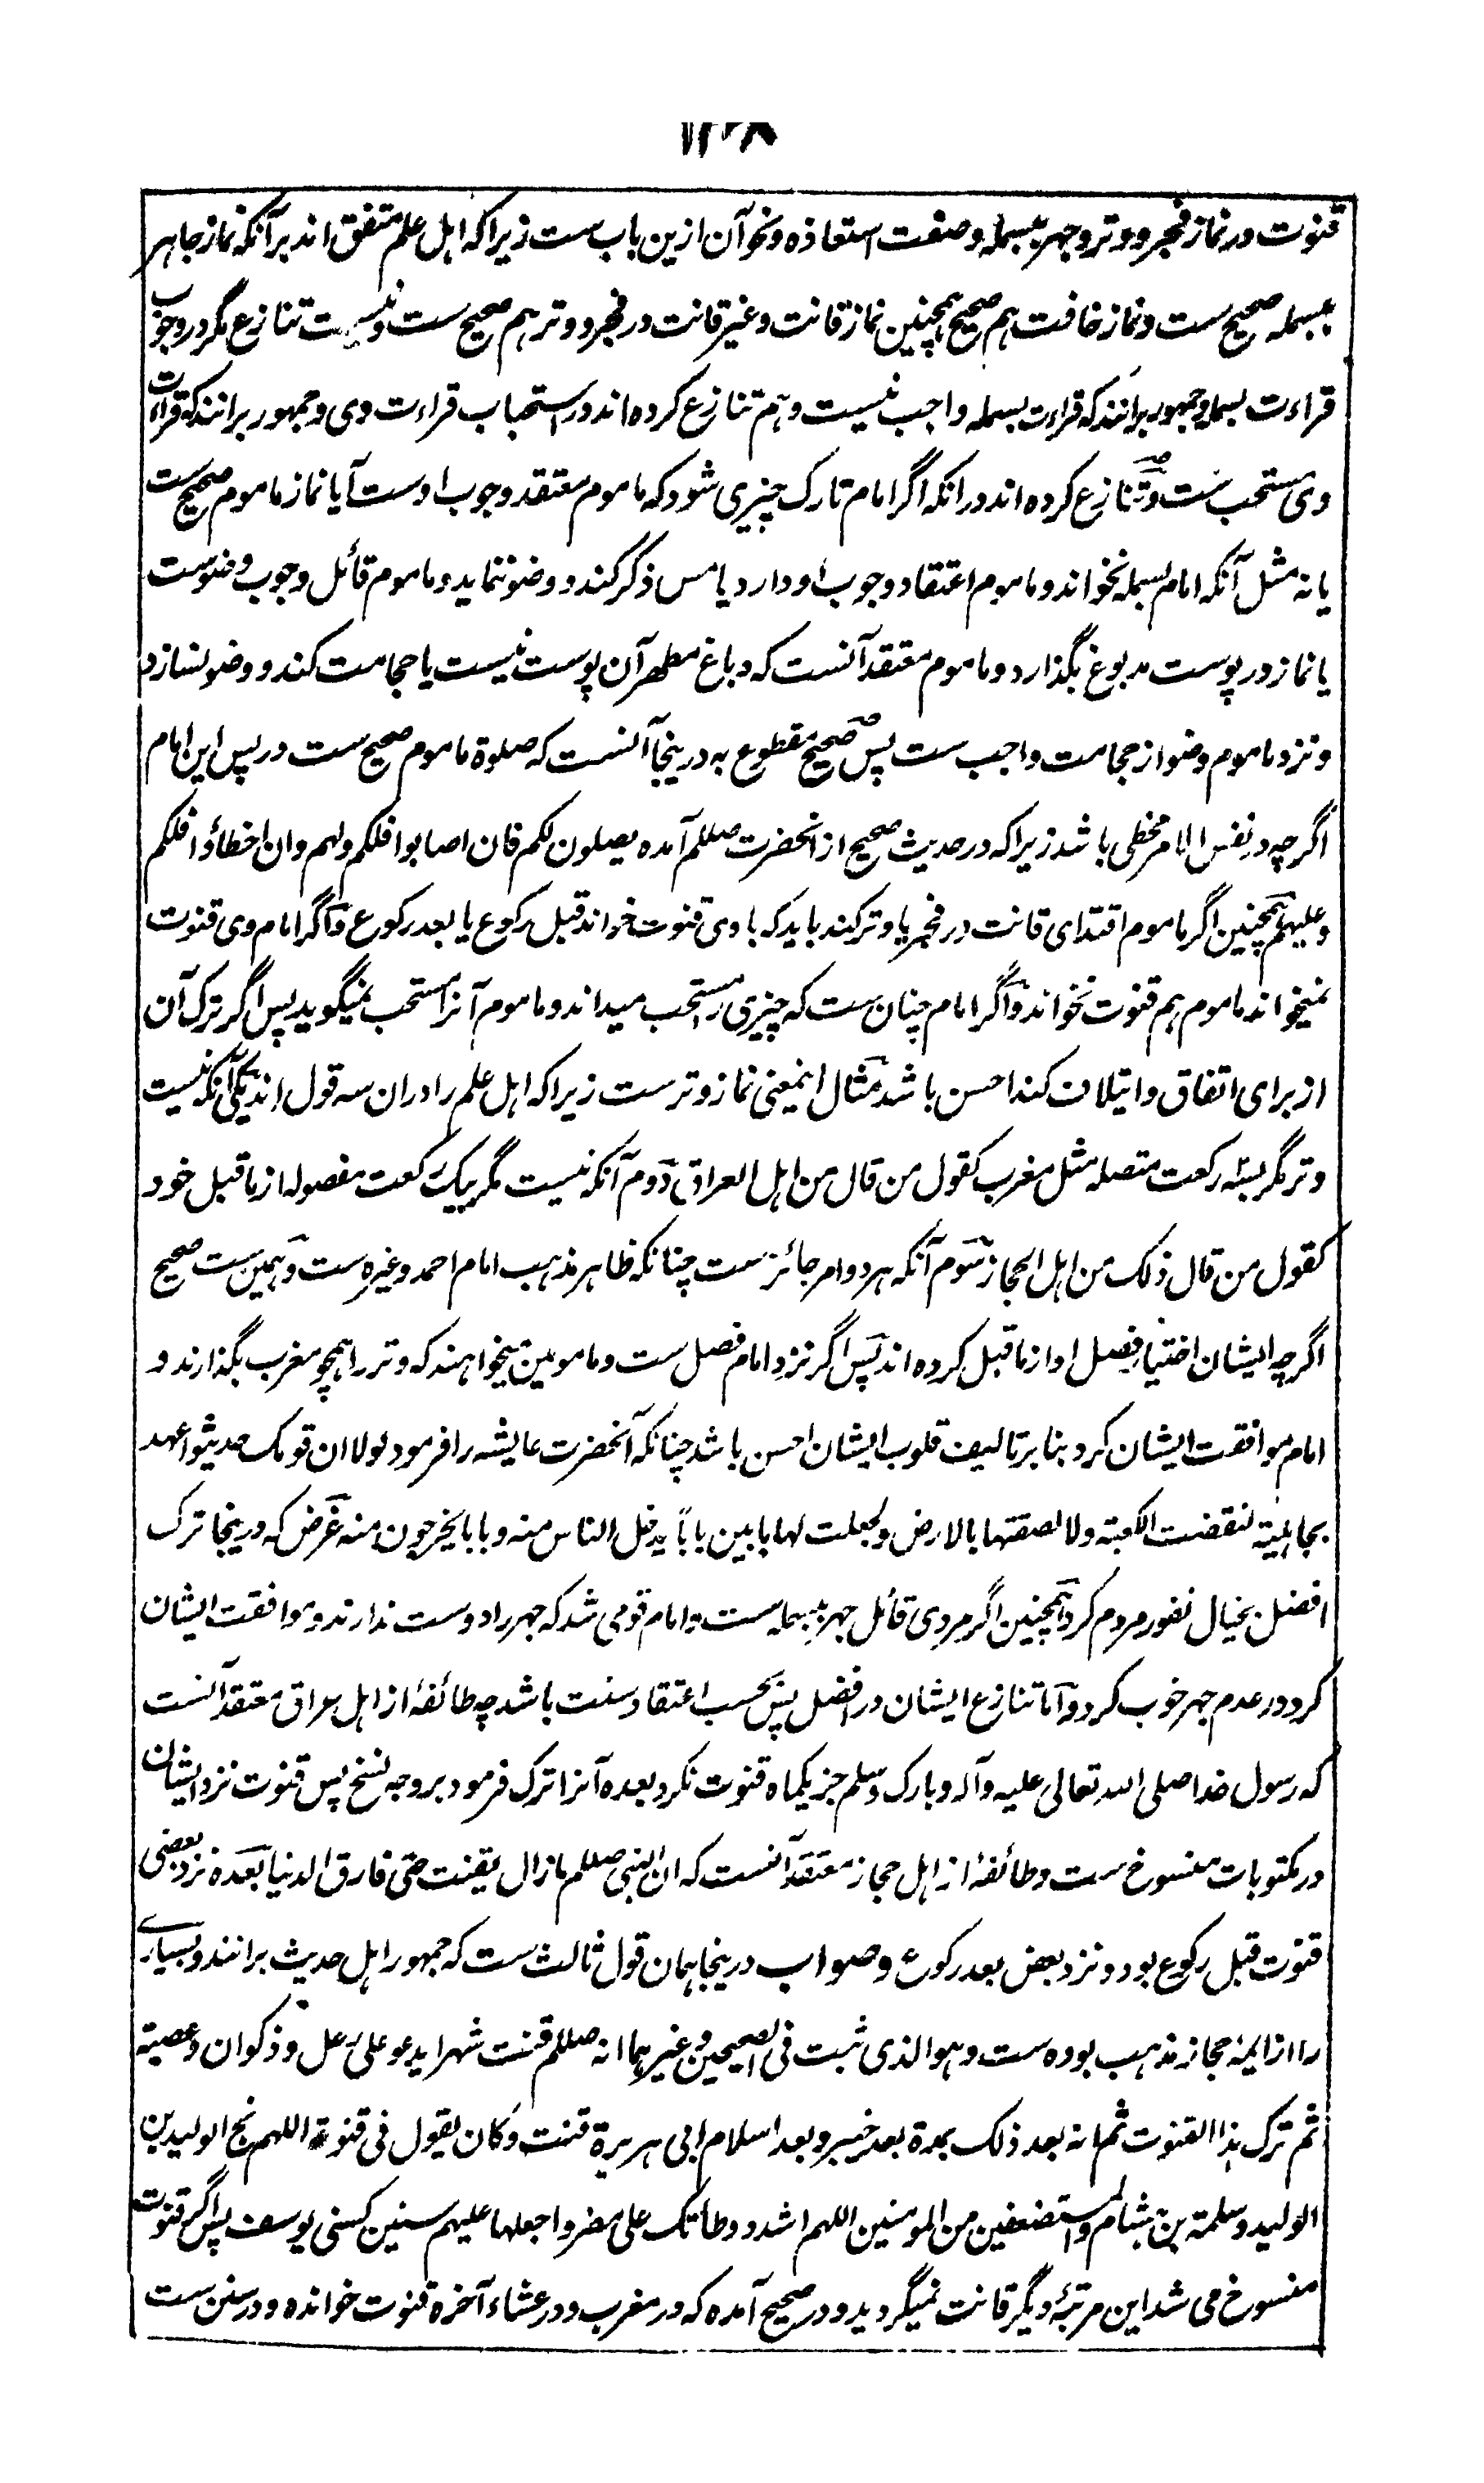 قنوت در نماز فجر و وتر و جهر ببسمله و صفت استعاذه و نحو آن ازین باب ست زیرا که اهل علم متفق اند بر آنکه نماز جاهر
ببسمله صحیح ست و نماز خافت هم صحیح همچنین نماز قانت و غیر قانت در فجر و وتر هم صحیح ست و نیست تنازع مگر در وجوب
قراءت بسمله و جمهور برانند که قراءت بسمله واجب نیست و هم تنازع کرده اند در استحباب قراءت وی و جمهور برانند که قراءت
وی مستحب ست و تنازع کرده اند در انکه اگر امام تارک چیزی شود که ماموم معتقد وجوب اوست آیا نماز ماموم صحیح ست
یا نه مثل آنکه امام بسمله نخواند و ماموم اعتقاد وجوب او دارد یا مس ذکر کند و وضو ننماید و ماموم قائل وجوب وضوست
یا نماز در پوست مدبوغ بگذارد و ماموم معتقد آنست که دباغ مطهر آن پوست نیست یا حجامت کند و وضو نسازد
و نزد ماموم وضو از حجامت واجب ست پس صحیح مقطوع به درینجا آنست که صلوة ماموم صحیح ست در پس این امام
اگرچه در نفس الامر مخطی باشد زیرا که در حدیث صحیح از انحضرت صللم آمده یصلون لکم فان اصابوا فلکم و لهم وان اخطاؤا فلکم
و علیهم همچنین اگر ماموم اقتدای قانت در فجر یا وتر کند باید که با وی قنوت خواند قبل رکوع یا بعد رکوع و اگر امام وی قنوت
نمیخواند ماموم هم قنوت نخواند و اگر امام چنان ست که چیزی را مستحب میداند و ماموم آنرا مستحب نمیگوید پس اگر ترک آن
از برای اتفاق و ایتلاف کند احسن باشد مثال اینمعنی نماز وتر ست زیرا که اهل علم را در ان سه قول اند یکی آنکه نیست
وتر مگر بسه رکعت متصله مثل مغرب کقول من قال من اهل العراق دوم آنکه نیست مگر بیک رکعت مفصوله از ماقبل خود
کقول من قال ذلک من اهل الحجاز سوم آنکه هر دو امر جائز ست چنانکه ظاهر مذهب امام احمد و غیره ست و همین ست صحیح
اگرچه ایشان اختیار فصل او از ماقبل کرده اند پس اگر نزد امام فصل ست و مامومین میخواهند که وتر را همچو مغرب بگذارند و
امام موافقت ایشان کرد بنا بر تالیف قلوب ایشان احسن باشد چنانکه آنحضرت عایشه را فرمود لولا ان قومک حدیثوا عهد
بجاهلیة لنقضت الکعبة و لالصقتها بالارض و لجعلت لها بابین باباً یدخل الناس منه و بابا یخرجون منه غرض که درینجا ترک
افضل بخیال نفور مردم کرد همچنین اگر مردی قائل جهر ببسمله ست و امام قومی شد که جهر را دوست ندارند و موافقت ایشان
کرد در عدم جهر خوب کرد و اما تنازع ایشان در افضل پس بحسب اعتقاد سنت باشد چه طائفۀ از اهل عراق معتقد آنست
که رسول خدا صلی الله تعالی علیه و آله و بارک وسلم جز یکماه قنوت نکرد بعده آنرا ترک فرمود بر وجه نسخ پس قنوت نزد ایشان
در مکتوبات منسوخ ست و طائفۀ از اهل حجاز معتقد آنست که ان النبی صللم مازال یقنت حتی فارق الدنیا بعده نزد بعضی
قنوت قبل رکوع بود و نزد بعض بعد رکوع و صواب درینجا همان قول ثالث ست که جمهور اهل حدیث برانند و بسیاری
را از ایمۀ حجاز مذهب بوده ست و هو الذی ثبت فی الصحیحین و غیرهما انه صللم قنت شهرا یدعو علی رعل و ذکوان و عصیة
ثم ترک هذا القنوت ثم انه بعد ذلک بمدة بعد خیبر و بعد اسلام ابی هریرة قنت و کان یقول فی قنوته اللهم نج الولید بن
الولید و سلمة بن هشام و المستضعفین من المومنین اللهم اشدد وطأتک علی مضر و اجعلها علیهم سنین کسنی یوسف پس اگر قنوت
منسوخ می شد این مرتبۀ دیگر قانت نمیگردید و در صحیح آمده که در مغرب و در عشاء آخره قنوت خوانده و در سنن ست